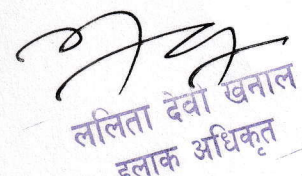 ललिता देवी खनाल
इलाका अधिकृत